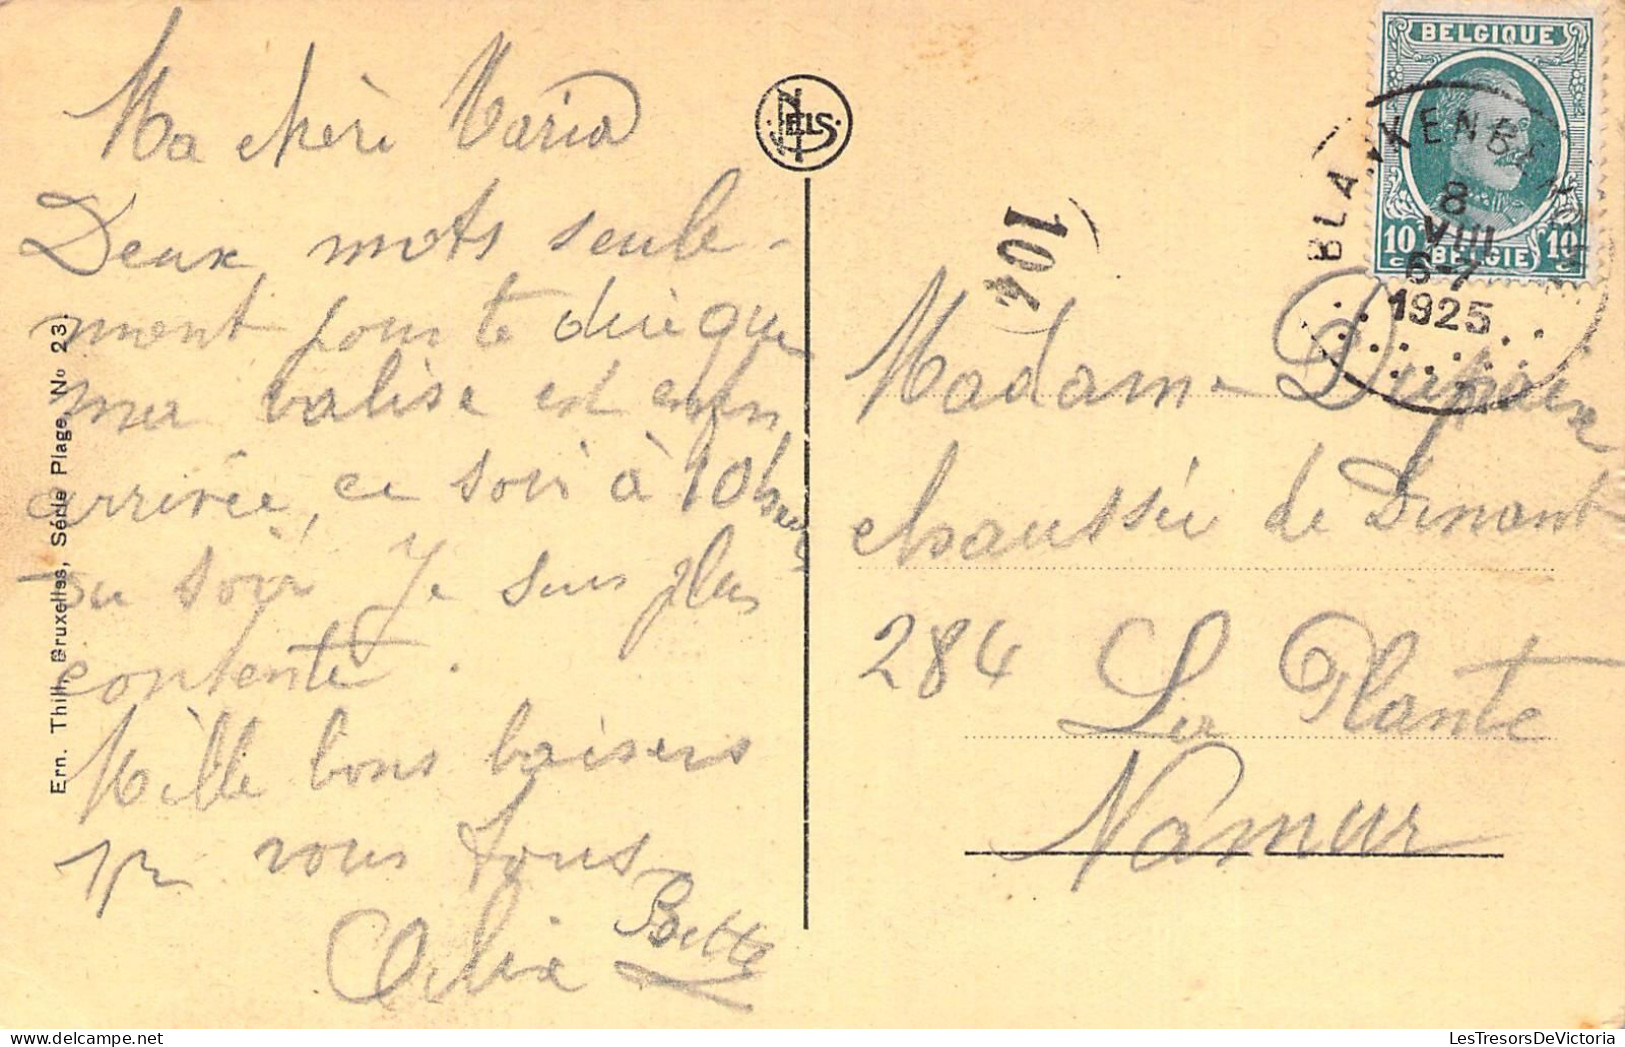 Ma chère Maria
Deux mots seule-
ment pour te dire que
ma valise est enfin
arrivée, ce soir à 10 heures
du soir Je suis plus
contente.
Mille bons baisers
vous tous
Bette
Ern. Thill, Bruxelles, Série Plage, No 23.
NELS
104
BELGIQUE
10c BELGIE 10c
BLANKENBERGHE
8
VIII
6-7
1925
Madame Dupaix
chaussée de Dinant
284 La Plante
Namur
LesTresorsDeVictoria